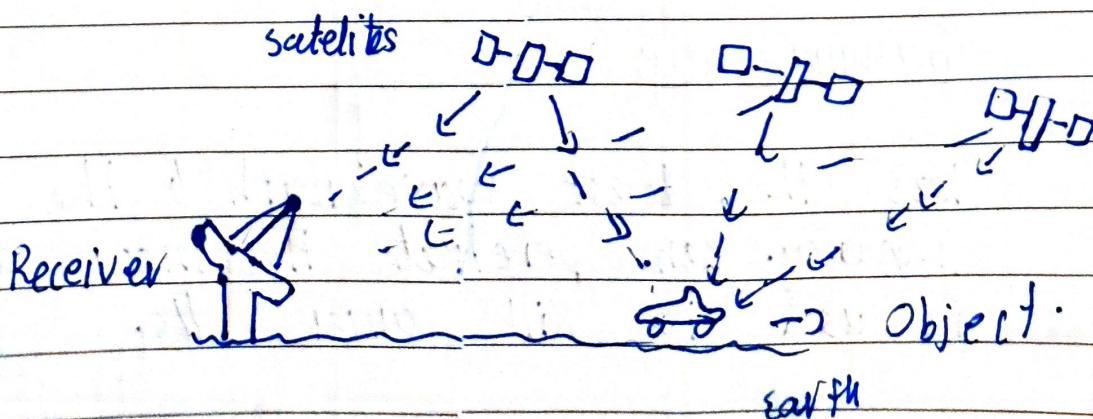 satelites
Receiver
Object.
Earth